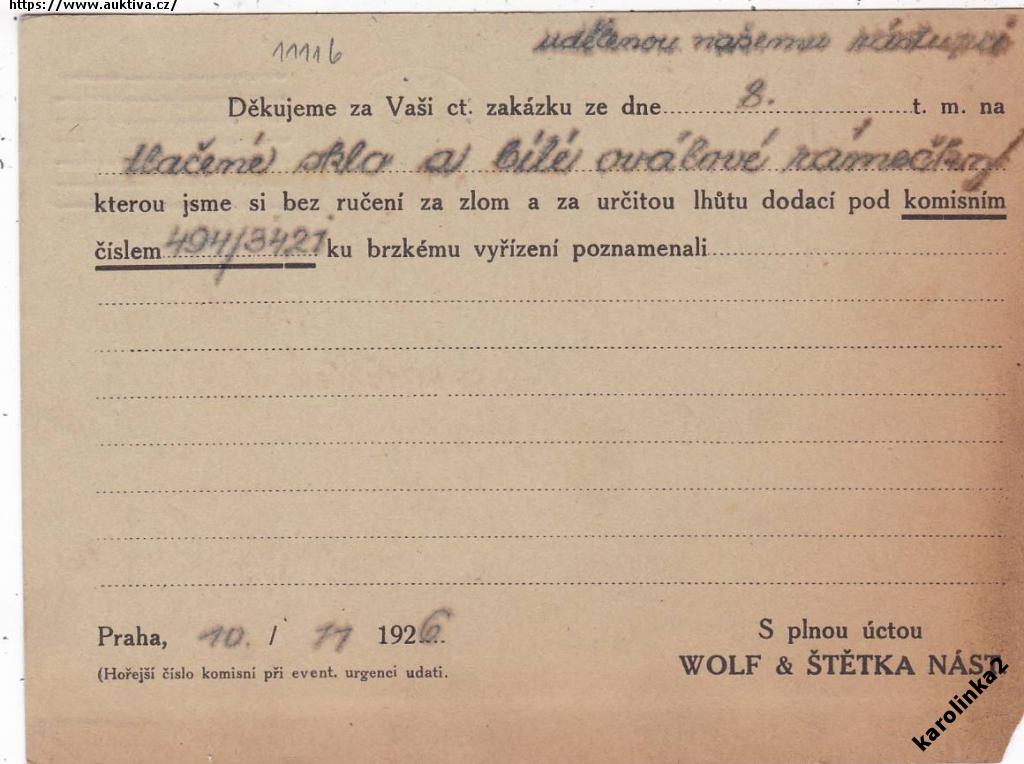 https://www.auktiva.cz/
11116
udělenou našemu zástupci
Děkujeme za Vaši ct. zakázku ze dne 8. t. m. na
tlačené sklo a bílé oválové rámečky
kterou jsme si bez ručení za zlom a za určitou lhůtu dodací pod komisním
číslem 494/3421 ku brzkému vyřízení poznamenali
Praha, 10. / 11 1926
S plnou úctou
(Hořejší číslo komisní při event. urgenci udati.
WOLF & ŠTĚTKA NÁST.
karolinka2